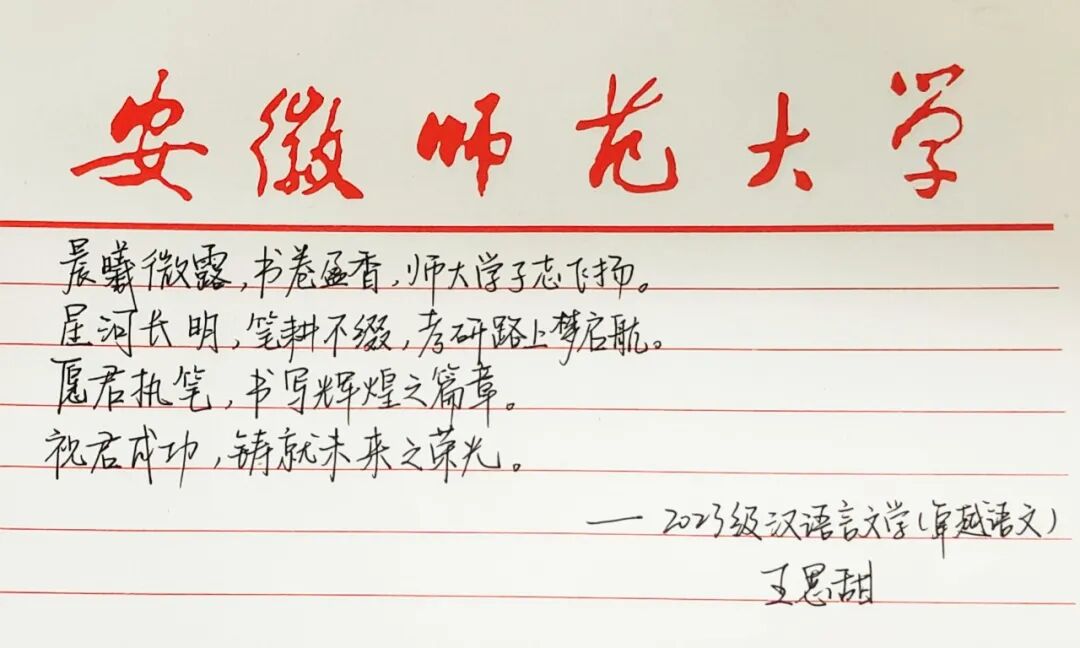 安徽师范大学
晨曦微露,书卷盈香,师大学子志飞扬。
星河长明,笔耕不缀,考研路上梦启航。
愿君执笔,书写辉煌之篇章。
祝君成功,铸就未来之荣光。
——2023级汉语言文学(卓越语文)
王思甜